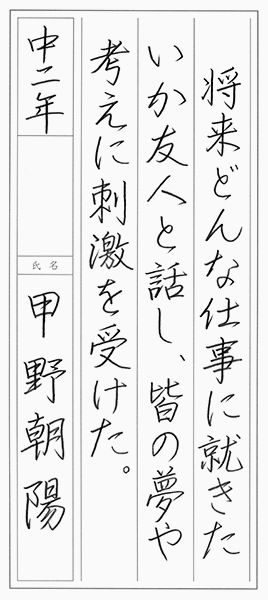 将来どんな仕事に就きた
いか友人と話し、皆の夢や
考えに刺激を受けた。
中二年
氏名
甲野朝陽